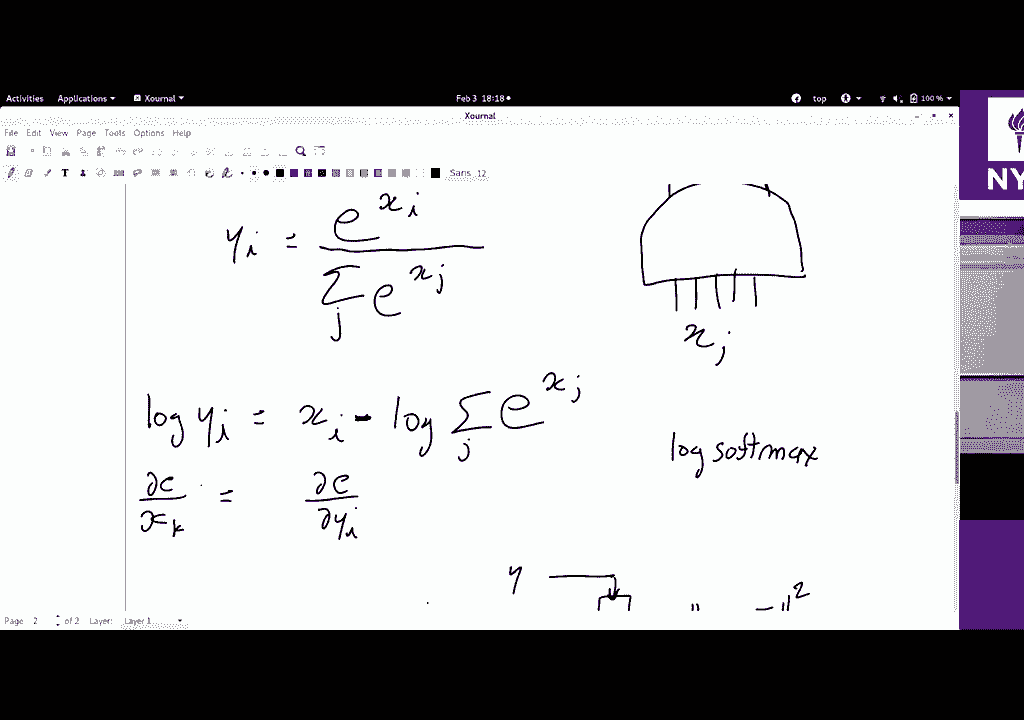 Activities Applications Xournal Feb 3 18:18 top 100 %
Xournal
File Edit View Page Tools Options Help
T Sans 12
NY
y_i = e^{x_i} / Σ_j e^{x_j}
x_j
log y_i = x_i - log Σ_j e^{x_j}
log softmax
∂c / x_k = ∂c / ∂y_i
y
" - "²
Page 2 of 2 Layer: Layer 1